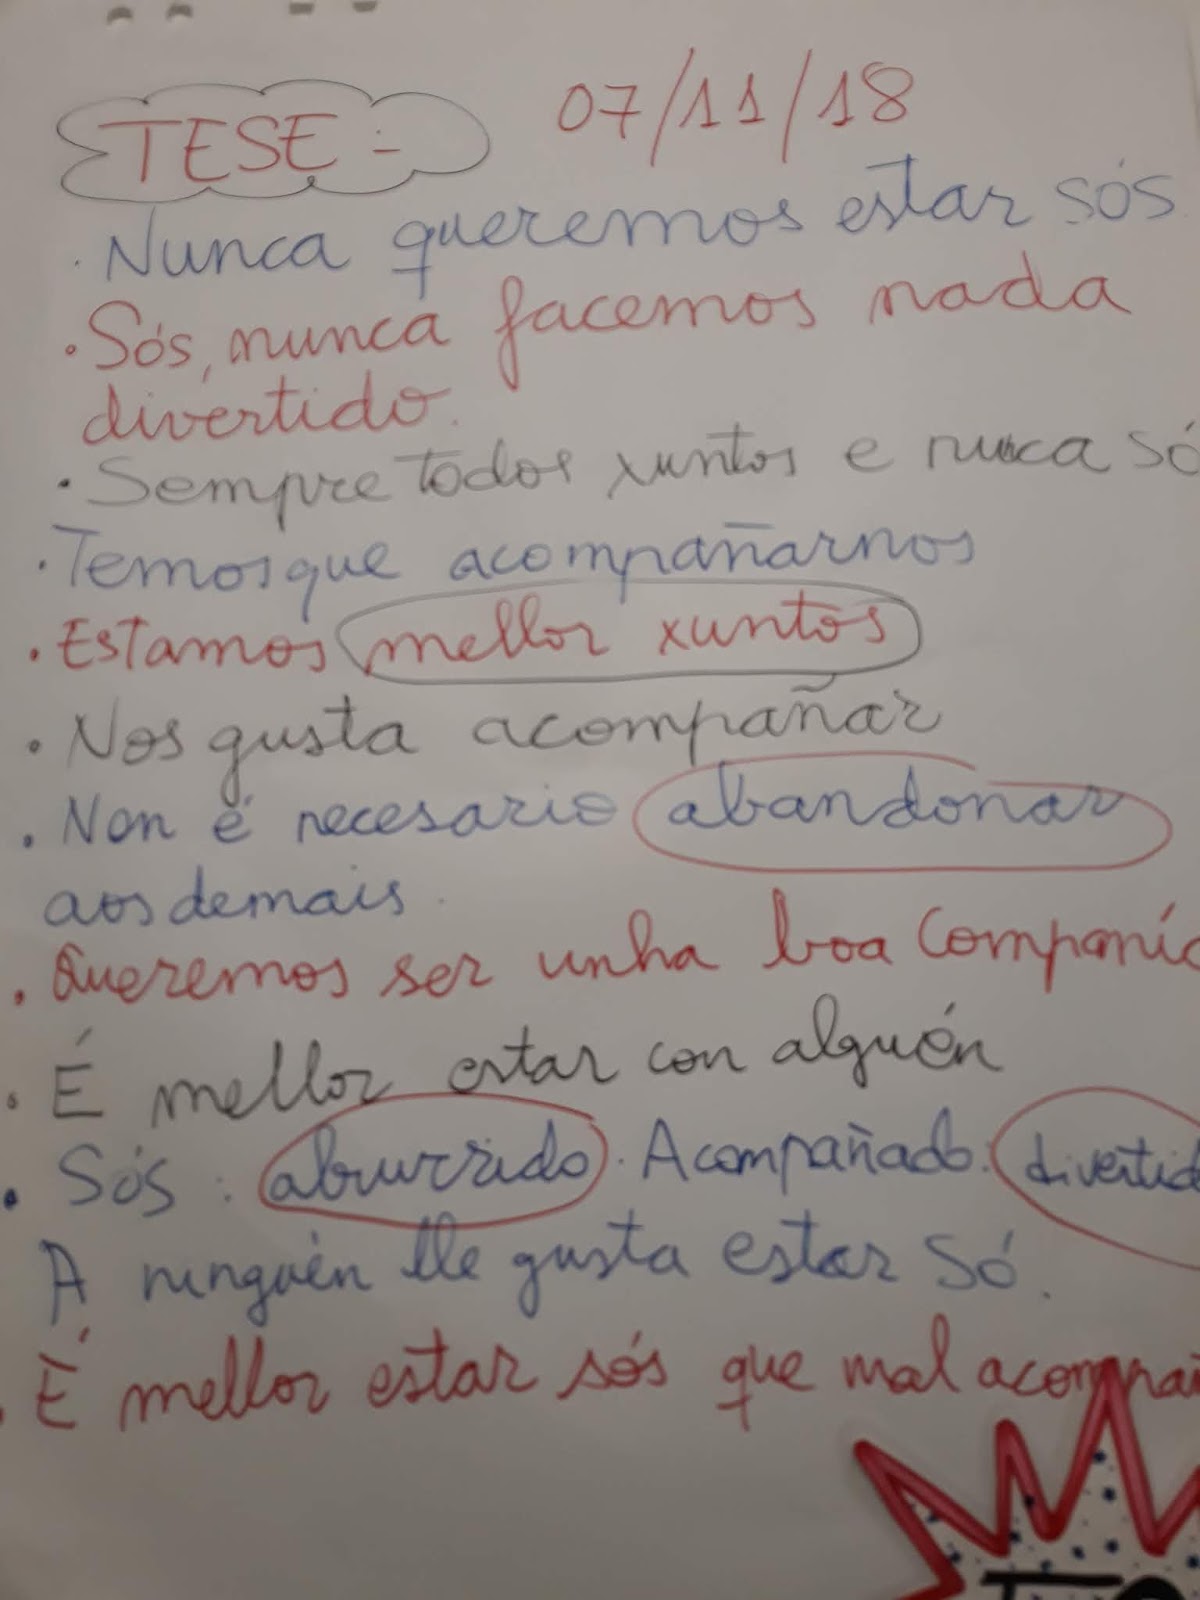 TESE:
07/11/18
· Nunca queremos estar sós
· Sós, nunca facemos nada
divertido.
· Sempre todos xuntos e nunca só
· Temos que acompañarnos
· Estamos mellor xuntos
· Nos gusta acompañar
· Non é necesario abandonar
aos demais.
· Queremos ser unha boa compañí
· É mellor estar con alguén
· Sós: aburrido. Acompañado: divertid
A ninguén lle gusta estar só.
· É mellor estar sós que mal acompañ